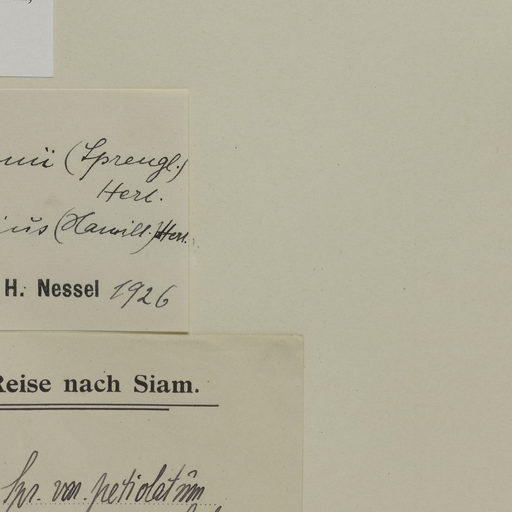 nii (Sprengl.)
Herl.
ius (Hamilt.) Herl.
H. Nessel 1926
Reise nach Siam.
Spr. var. petiolatum